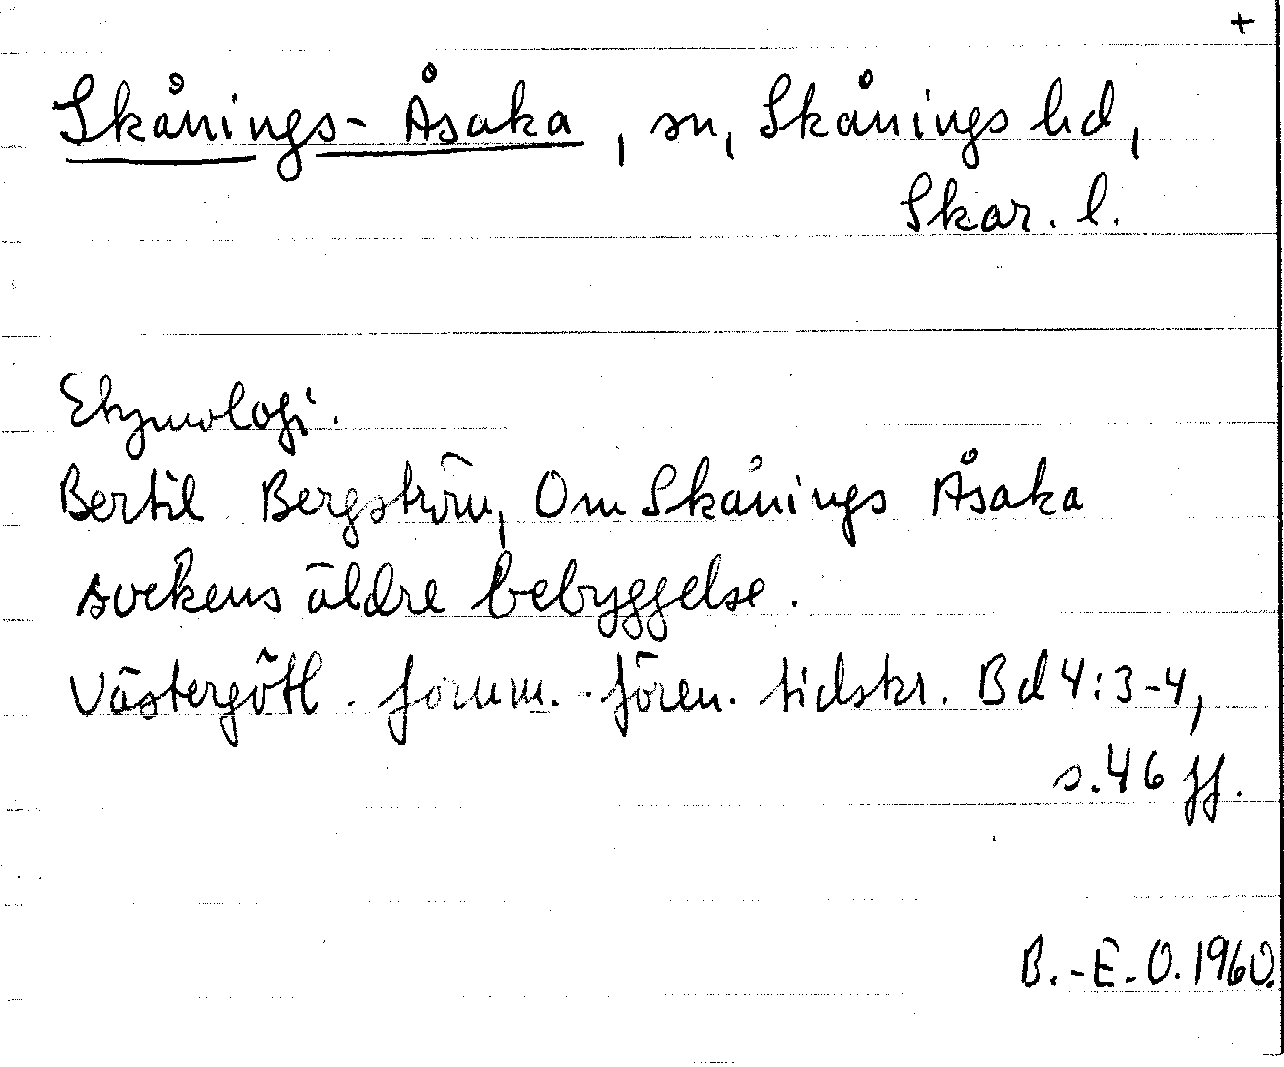 +
Skånings-Åsaka, sn, Skånings hd,
Skar. l.
Etymologi.
Bertil Bergström, Om Skånings Åsaka
sockens äldre bebyggelse.
Västergötl. fornm.-fören. tidskr. Bd 4:3-4,
s. 46 ff.
B.-E. O. 1960.